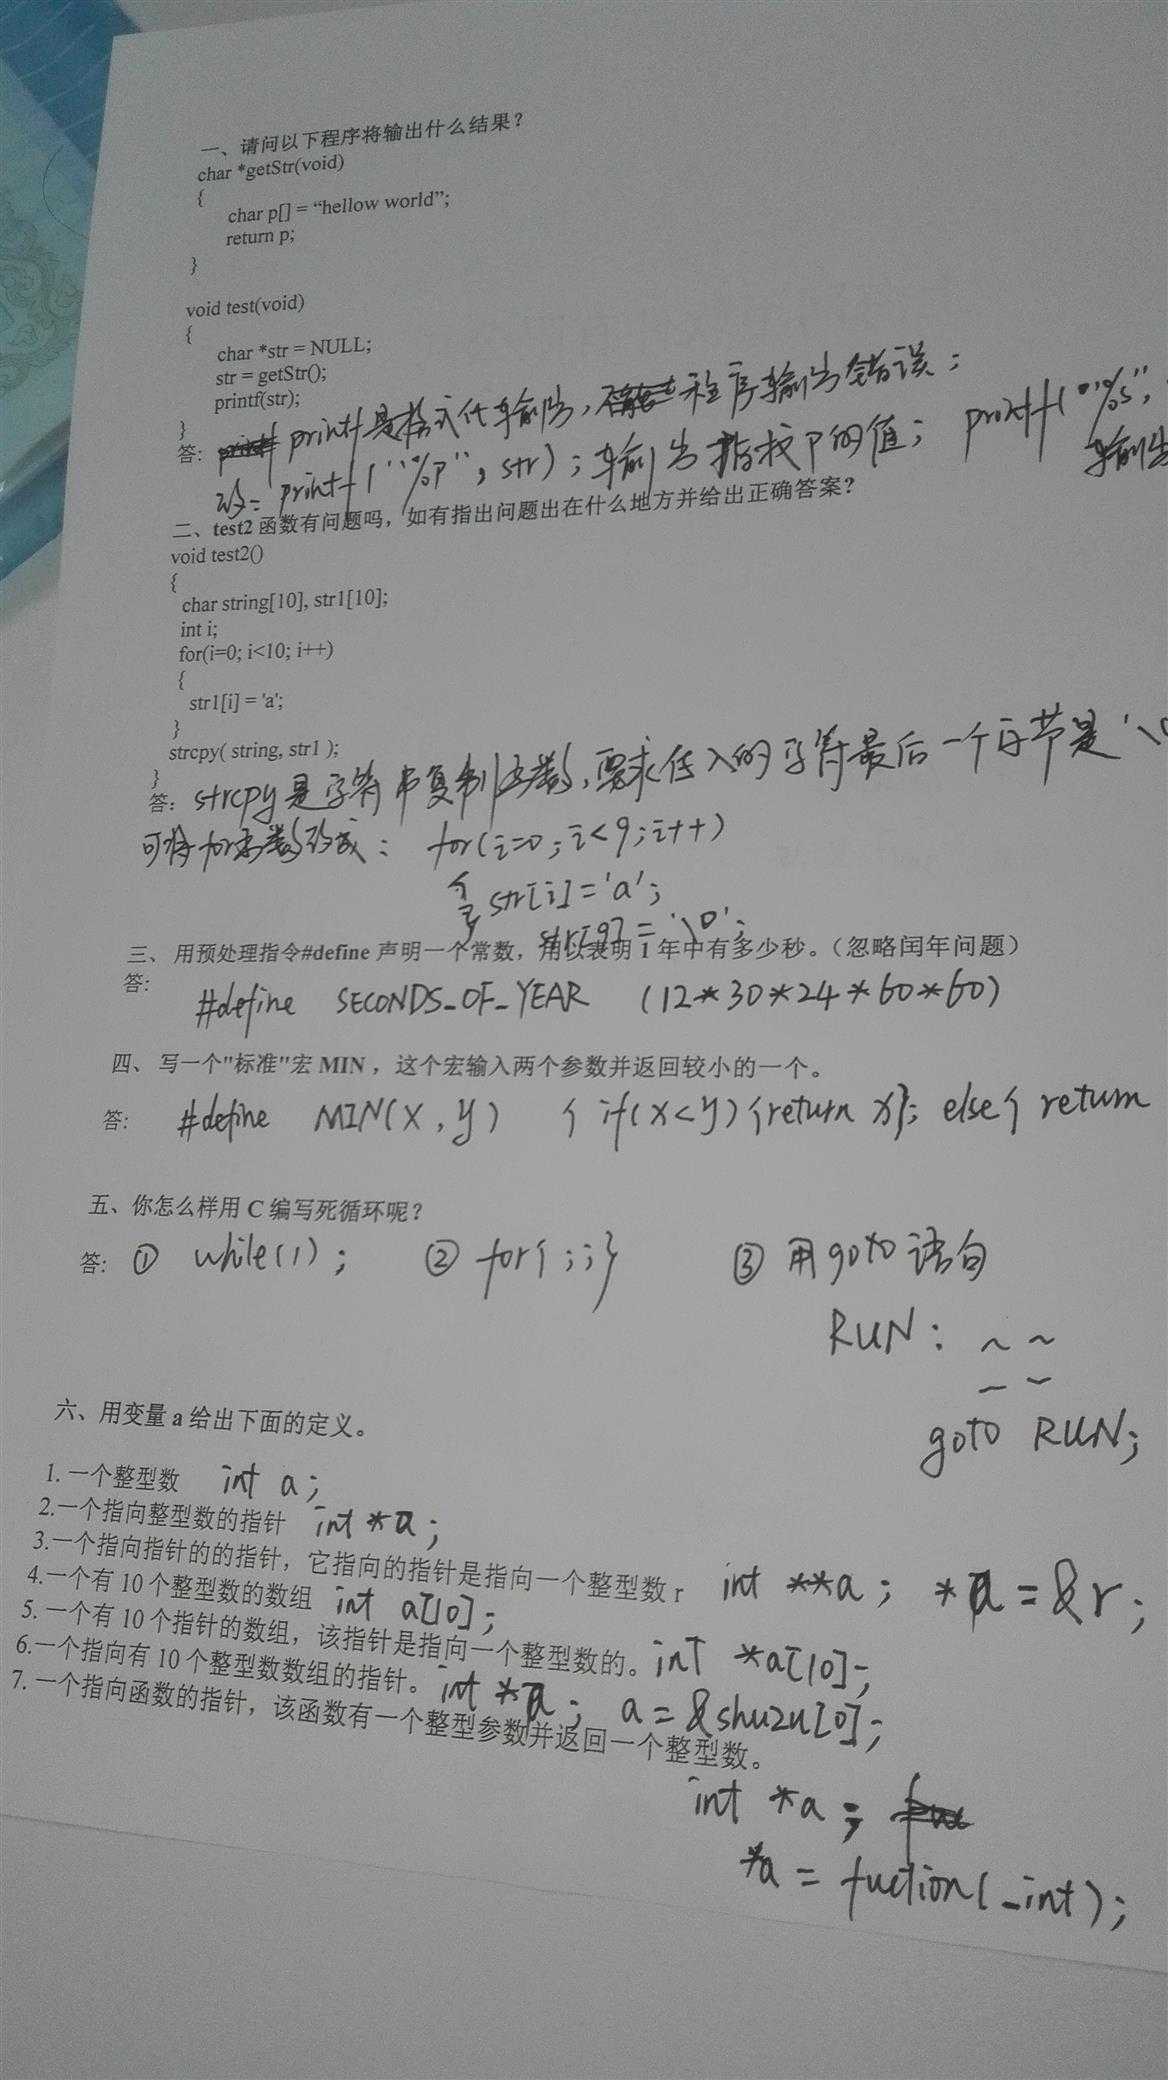 一、请问以下程序将输出什么结果？
char *getStr(void)
{
char p[] = “hellow world”;
return p;
}
void test(void)
{
char *str = NULL;
str = getStr();
printf(str);
}
答: printf是格式化输出, 程序输出错误;
改: printf("%p", str); 输出指找P的值; printf("%s",
输出
二、test2 函数有问题吗，如有指出问题出在什么地方并给出正确答案？
void test2()
{
char string[10], str1[10];
int i;
for(i=0; i<10; i++)
{
str1[i] = 'a';
}
strcpy( string, str1 );
}
答: strcpy是字符串复制函数, 要求传入的字符最后一个字节是'\0
可将for函数改成: for(i=0; i<9; i++)
{ str[i]='a';
str[9]='\0';
三、用预处理指令#define 声明一个常数，用以表明 1 年中有多少秒。（忽略闰年问题）
答:
#define SECONDS_OF_YEAR (12*30*24*60*60)
四、写一个"标准"宏 MIN ，这个宏输入两个参数并返回较小的一个。
答: #define MIN(x,y) { if(x<y){return x}; else{ return
五、你怎么样用 C 编写死循环呢？
答: ① while(1); ② for{;;} ③ 用goto语句
RUN: ~ ~
~ ~
goto RUN;
六、用变量 a 给出下面的定义。
1. 一个整型数 int a;
2.一个指向整型数的指针 int *a;
3.一个指向指针的的指针，它指向的指针是指向一个整型数 r int **a; *a=&r;
4.一个有 10 个整型数的数组 int a[10];
5. 一个有 10 个指针的数组，该指针是指向一个整型数的。int *a[10];
6.一个指向有 10 个整型数数组的指针。int *a; a=&shuzu[0];
7. 一个指向函数的指针，该函数有一个整型参数并返回一个整型数。
int *a;
*a = fuction(_int);